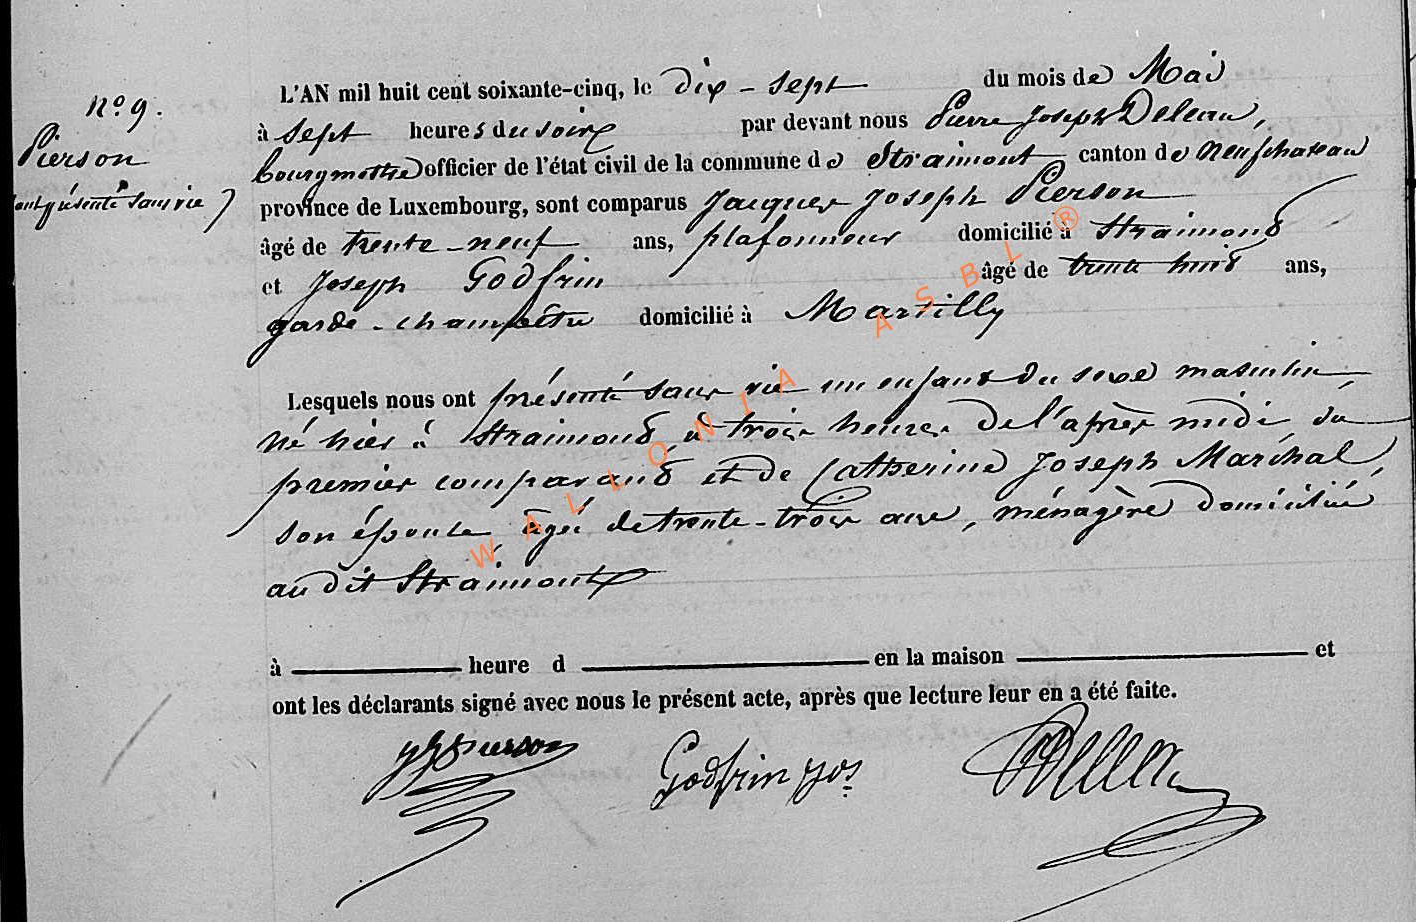 L'AN mil huit cent soixante-cinq, le dix-sept du mois de Mai
n° 9.
à sept heures du soir par devant nous Pierre Joseph Deleau,
Pierson
bourgmestre officier de l'état civil de la commune de Straimont canton de Neufchateau
présenté sans vie)
province de Luxembourg, sont comparus Jacques Joseph Pierson
âgé de trente-neuf ans, plafonneur domicilié à Straimont
et Joseph Godfrin âgé de trente huit ans,
garde-champêtre domicilié à Martilly
Lesquels nous ont présenté sans vie un enfant du sexe masculin,
né hier à Straimont, à trois heures de l'après midi, du
premier comparant et de Catherine Joseph Maréhal,
son épouse, âgée de trente-trois ans, ménagère domiciliée
au dit Straimont
à heure d en la maison et
ont les déclarants signé avec nous le présent acte, après que lecture leur en a été faite.
JJ Pierson Godfrin Jos
WALLONIA ASBL ®